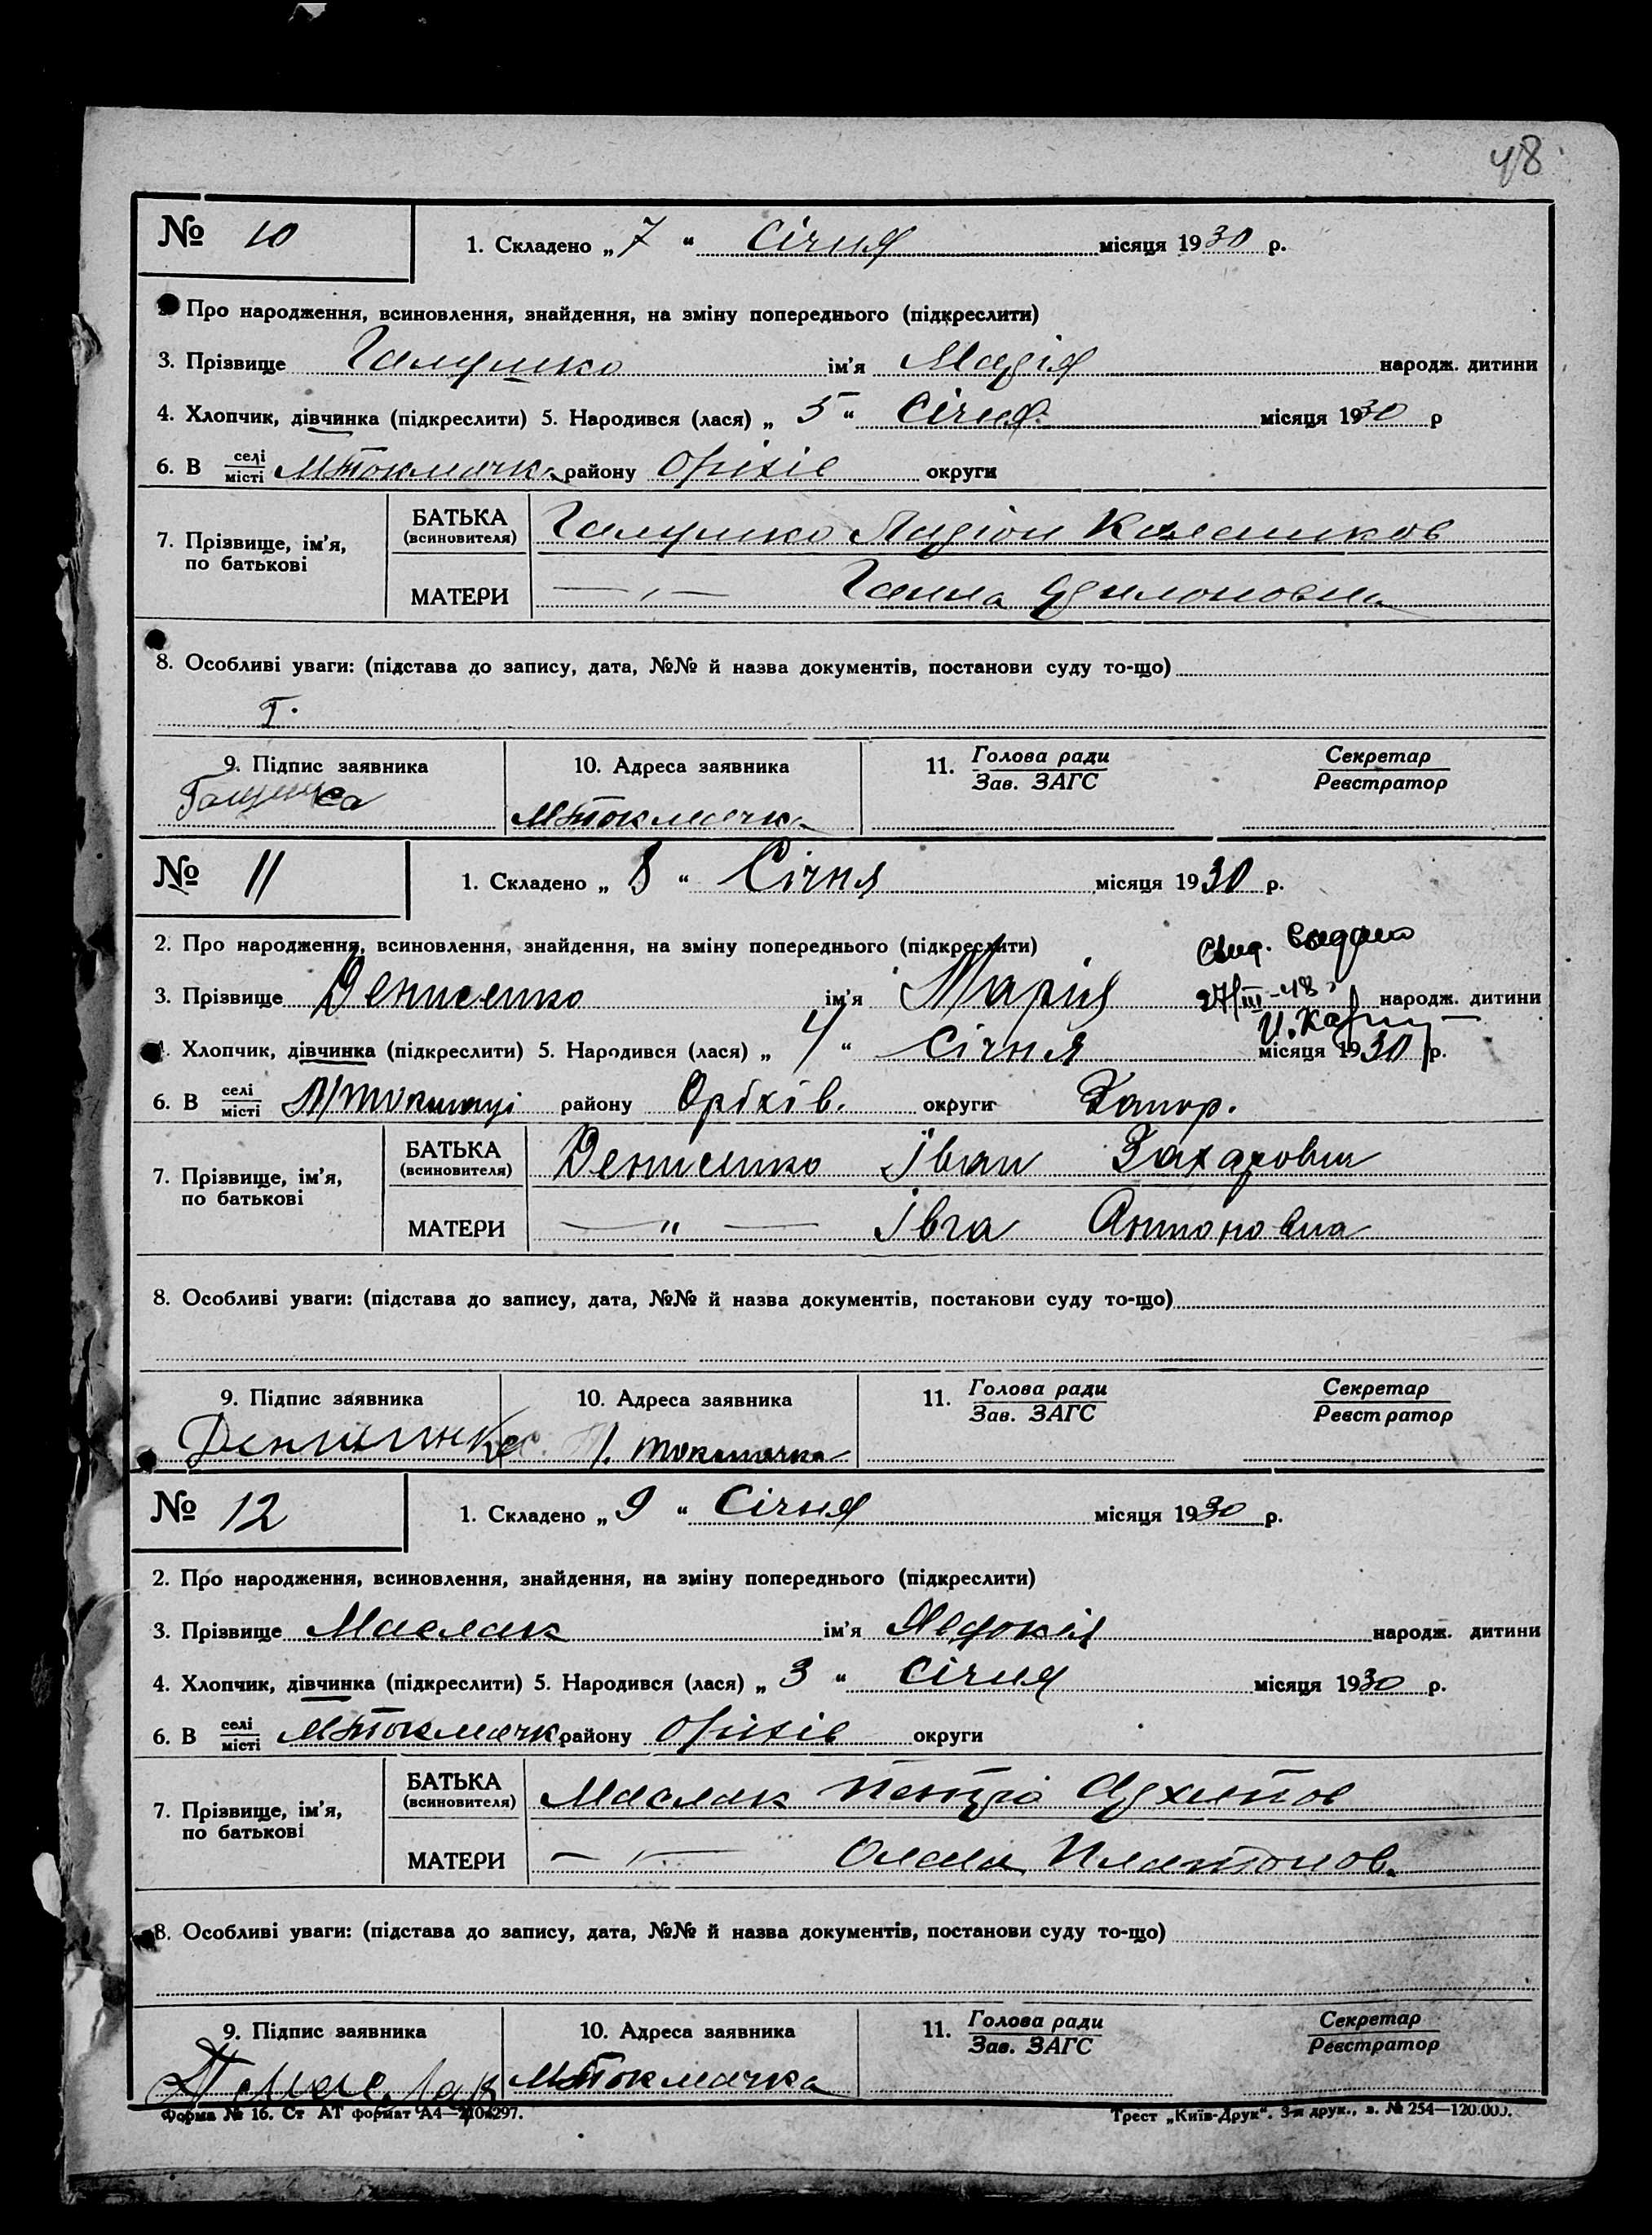 48
№ 10 1. Складено „ 7 “ Січня місяця 1930 р.
Про народження, всиновлення, знайдення, на зміну попереднього (підкреслити)
3. Прізвище Галушко ім'я Марія народж. дитини
4. Хлопчик, дівчинка (підкреслити) 5. Народився (лася) „ 5 “ Січня місяця 1930 р
6. В селі місті МТокмачка району Оріхів округи
7. Прізвище, ім'я, по батькові
БАТЬКА (всиновителя) Галушко
МАТЕРИ —„— Ганна
8. Особливі уваги: (підстава до запису, дата, №№ й назва документів, постанови суду то-що)
Г.
9. Підпис заявника 10. Адреса заявника 11. Голова ради Зав. ЗАГС Секретар Реєстратор
МТокмачка
№ 11 1. Складено „ 8 “ Січня місяця 1930 р.
2. Про народження, всиновлення, знайдення, на зміну попереднього (підкреслити)
Свид. выдано
3. Прізвище Денисенко ім'я Марія 27/III-48 народж. дитини
4. Хлопчик, дівчинка (підкреслити) 5. Народився (лася) „ 4 “ Січня місяця 1930 р.
6. В селі місті М/токмачці району Оріхів. округи Запор.
7. Прізвище, ім'я, по батькові
БАТЬКА (всиновителя) Денисенко Іван Захарович
МАТЕРИ —„— Івга Антоновна
8. Особливі уваги: (підстава до запису, дата, №№ й назва документів, постанови суду то-що)
9. Підпис заявника 10. Адреса заявника 11. Голова ради Зав. ЗАГС Секретар Реєстратор
М. токмачка
№ 12 1. Складено „ 9 “ Січня місяця 1930 р.
2. Про народження, всиновлення, знайдення, на зміну попереднього (підкреслити)
3. Прізвище Маслак ім'я Явдокія народж. дитини
4. Хлопчик, дівчинка (підкреслити) 5. Народився (лася) „ 3 “ Січня місяця 1930 р.
6. В селі місті МТокмачк району Оріхів округи
7. Прізвище, ім'я, по батькові
БАТЬКА (всиновителя) Маслак Петро Архипов
МАТЕРИ —„— Олена Платонов.
8. Особливі уваги: (підстава до запису, дата, №№ й назва документів, постанови суду то-що)
9. Підпис заявника 10. Адреса заявника 11. Голова ради Зав. ЗАГС Секретар Реєстратор
МТокмачка
Форма № 16. Ст АТ формат А4—210×297. Трест „Київ-Друк“. 3-я друк., з. № 254—120.000.